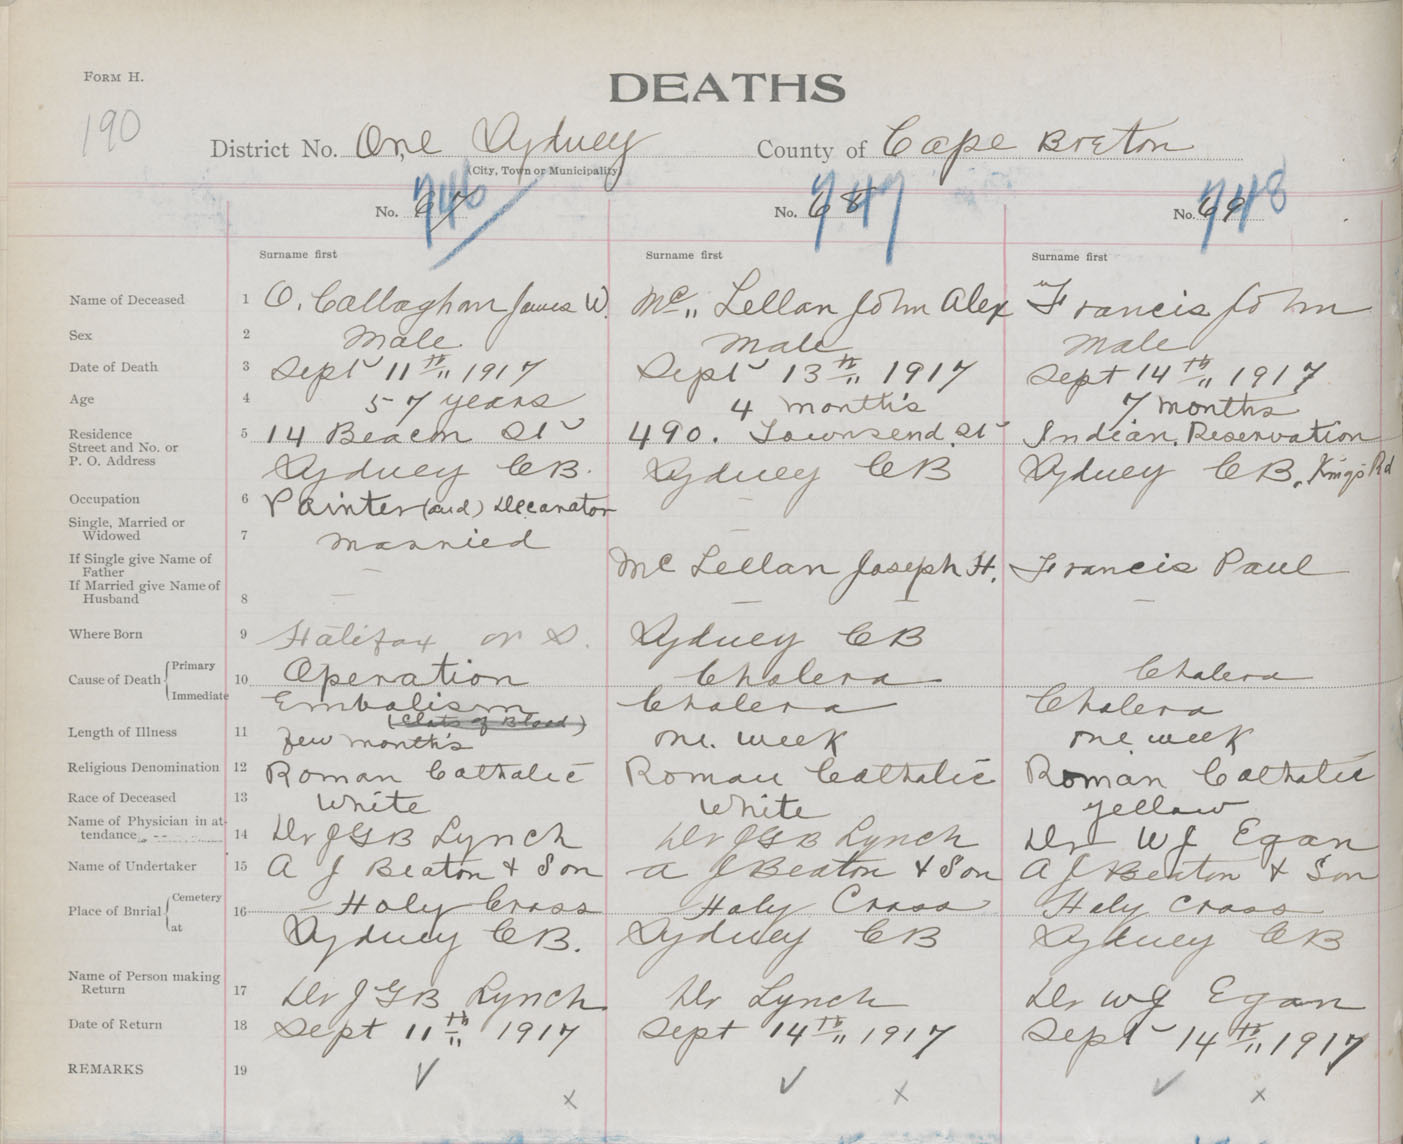 FORM H.
DEATHS
190
District No. One Sydney County of Cape Breton
(City, Town or Municipality)
746 747 748
No. 67 No. 68 No. 69
Surname first Surname first Surname first
Name of Deceased 1 O. Callaghan James W. Mc,, Lellan John Alex Francis John
Sex 2 Male. Male Male
Date of Death 3 Sept 11th,, 1917 Sept 13th,, 1917 Sept 14th,, 1917
Age 4 57 years 4 month's 7 months
Residence 5 14 Beacon St 490. Townsend. St Indian. Reservation
Street and No. or
P. O. Address Sydney CB. Sydney CB Sydney CB, Kings Rd
Occupation 6 Painter (and) Decarator –
Single, Married or
Widowed 7 Married –
If Single give Name of
Father – Mc Lellan Joseph H. Francis Paul
If Married give Name of
Husband 8 – – – –
Where Born 9 Halifax N S. Sydney CB
Cause of Death { Primary 10 Operation Cholera Cholera
Immediate Embolism Cholera Cholera
(Clots of Blood)
Length of Illness 11 few month's one. week one. week
Religious Denomination 12 Roman Catholic Roman Catholic Roman Catholic
Race of Deceased 13 White White yellow
Name of Physician in at-
tendance 14 Dr J G B Lynch Dr J G B Lynch Dr W J Egan
Name of Undertaker 15 A J Beaton & Son A J Beaton & Son A J Beaton & Son
Place of Burial { Cemetery 16 Holy Cross Holy Cross Holy Cross
at Sydney CB. Sydney CB Sydney CB
Name of Person making
Return 17 Dr J G B Lynch Dr Lynch Dr W J Egan
Date of Return 18 Sept 11th,, 1917 Sept 14th,, 1917 Sept 14th,, 1917
REMARKS 19 ✓ x ✓ x ✓ x